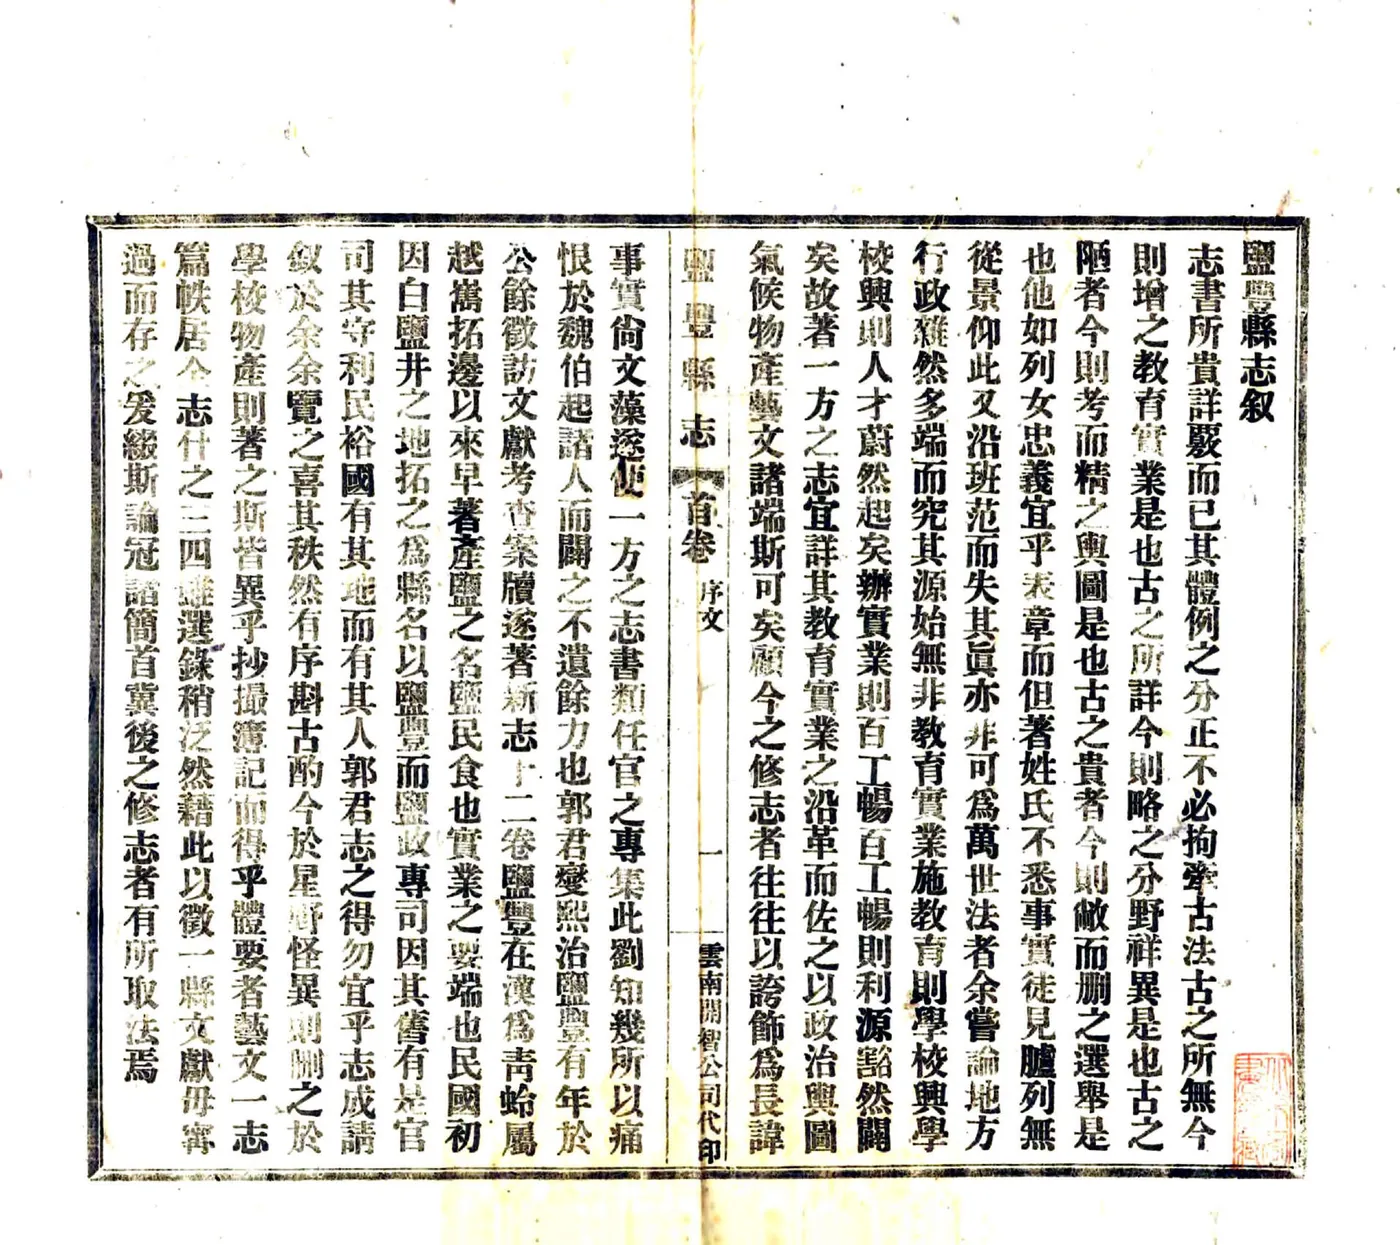 鹽豐縣志叙
志書所貴詳覈而已其體例之分正不必拘牽古法古之所無今
則增之教育實業是也古之所詳今則略之分野祥異是也古之
陋者今則考而精之輿圖是也古之貴者今則敝而删之選舉是
也他如列女忠義宜乎表章而但著姓氏不悉事實徒見臚列無
從景仰此又沿班范而失其眞亦非可爲萬世法者余嘗論地方
行政雖然多端而究其源始無非教育實業施教育則學校興學
校興則人才蔚然起矣辦實業則百工暢百工暢則利源豁然闢
矣故著一方之志宜詳其教育實業之沿革而佐之以政治輿圖
氣候物產藝文諸端斯可矣顧今之修志者往往以誇飾爲長諱
鹽豐縣志 首卷 序文 一 雲南開智公司代印
事實尙文藻遂使一方之志書類任官之專集此劉知幾所以痛
恨於魏伯起諸人而闢之不遺餘力也郭君燮熙治鹽豐有年於
公餘徵訪文獻考查案牘遂著新志十二卷鹽豐在漢爲靑蛉屬
越嶲拓邊以來早著產鹽之名鹽民食也實業之要端也民國初
因白鹽井之地拓之爲縣名以鹽豐而鹽政專司因其舊有是官
司其守利民裕國有其地而有其人郭君志之得勿宜乎志成請
叙於余余覽之喜其秩然有序斟古酌今於星野怪異則删之於
學校物產則著之斯皆異乎抄撮簿記而得乎體要者藝文一志
篇帙居全志什之三四雖選錄稍泛然藉此以徵一縣文獻毋寗
過而存之爰綴斯論冠諸簡首冀後之修志者有所取法焉